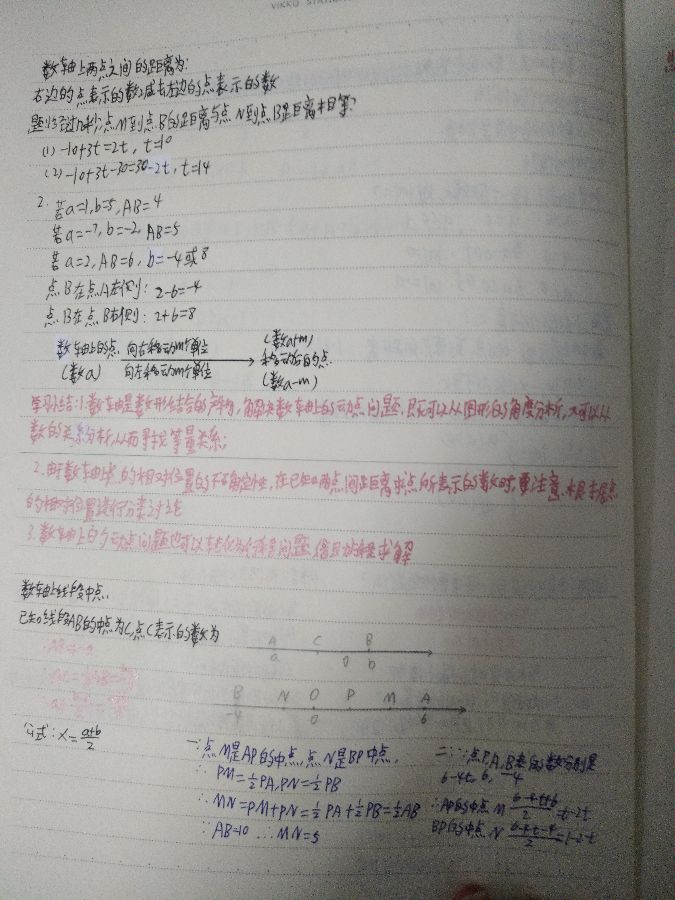 数轴上两点之间的距离为:
右边的点表示的数减去左边的点表示的数
经过几秒,点M到点B的距离与点N到点B距离相等?
(1) -10+3t=2t, t=10
(2) -10+3t-30=30-2t, t=14
2. 若a=1,b=5, AB=4
若a=-7, b=-2, AB=5
若a=2, AB=6, b=-4或8
点B在点A左侧: 2-6=-4
点B在点B右侧: 2+6=8
(数a+m)
数轴上的点 向右移动m个单位 移动后的点
(数a) 向左移动m个单位
(数a-m)
学习小结:1.数轴是数形结合的产物,解决数轴上的动点问题,既可以从图形的角度分析,又可以从
数的关系分析,从而寻找等量关系;
2.由于数轴上点的相对位置的不确定性,在已知两点间距离求点所表示的数时,要注意根据点
的相对位置进行分类讨论
3.数轴上的动点问题也可以转化为行程问题,借助方程求解
数轴上线段中点.
已知线段AB的中点为C,点C表示的数为
A C B
a 0 b
B N O P M A
-4 0 6
公式: x=\frac{a+b}{2}
一∵点M是AP的中点,点N是BP中点,
∴PM=\frac{1}{2}PA,PN=\frac{1}{2}PB
∴MN=PM+PN=\frac{1}{2}PA+\frac{1}{2}PB=\frac{1}{2}AB
∵AB=10 ∴MN=5
二∵点P,A,B表的数分别是
6-4t, 6, -4
∴AP的中点M
BP的中点N